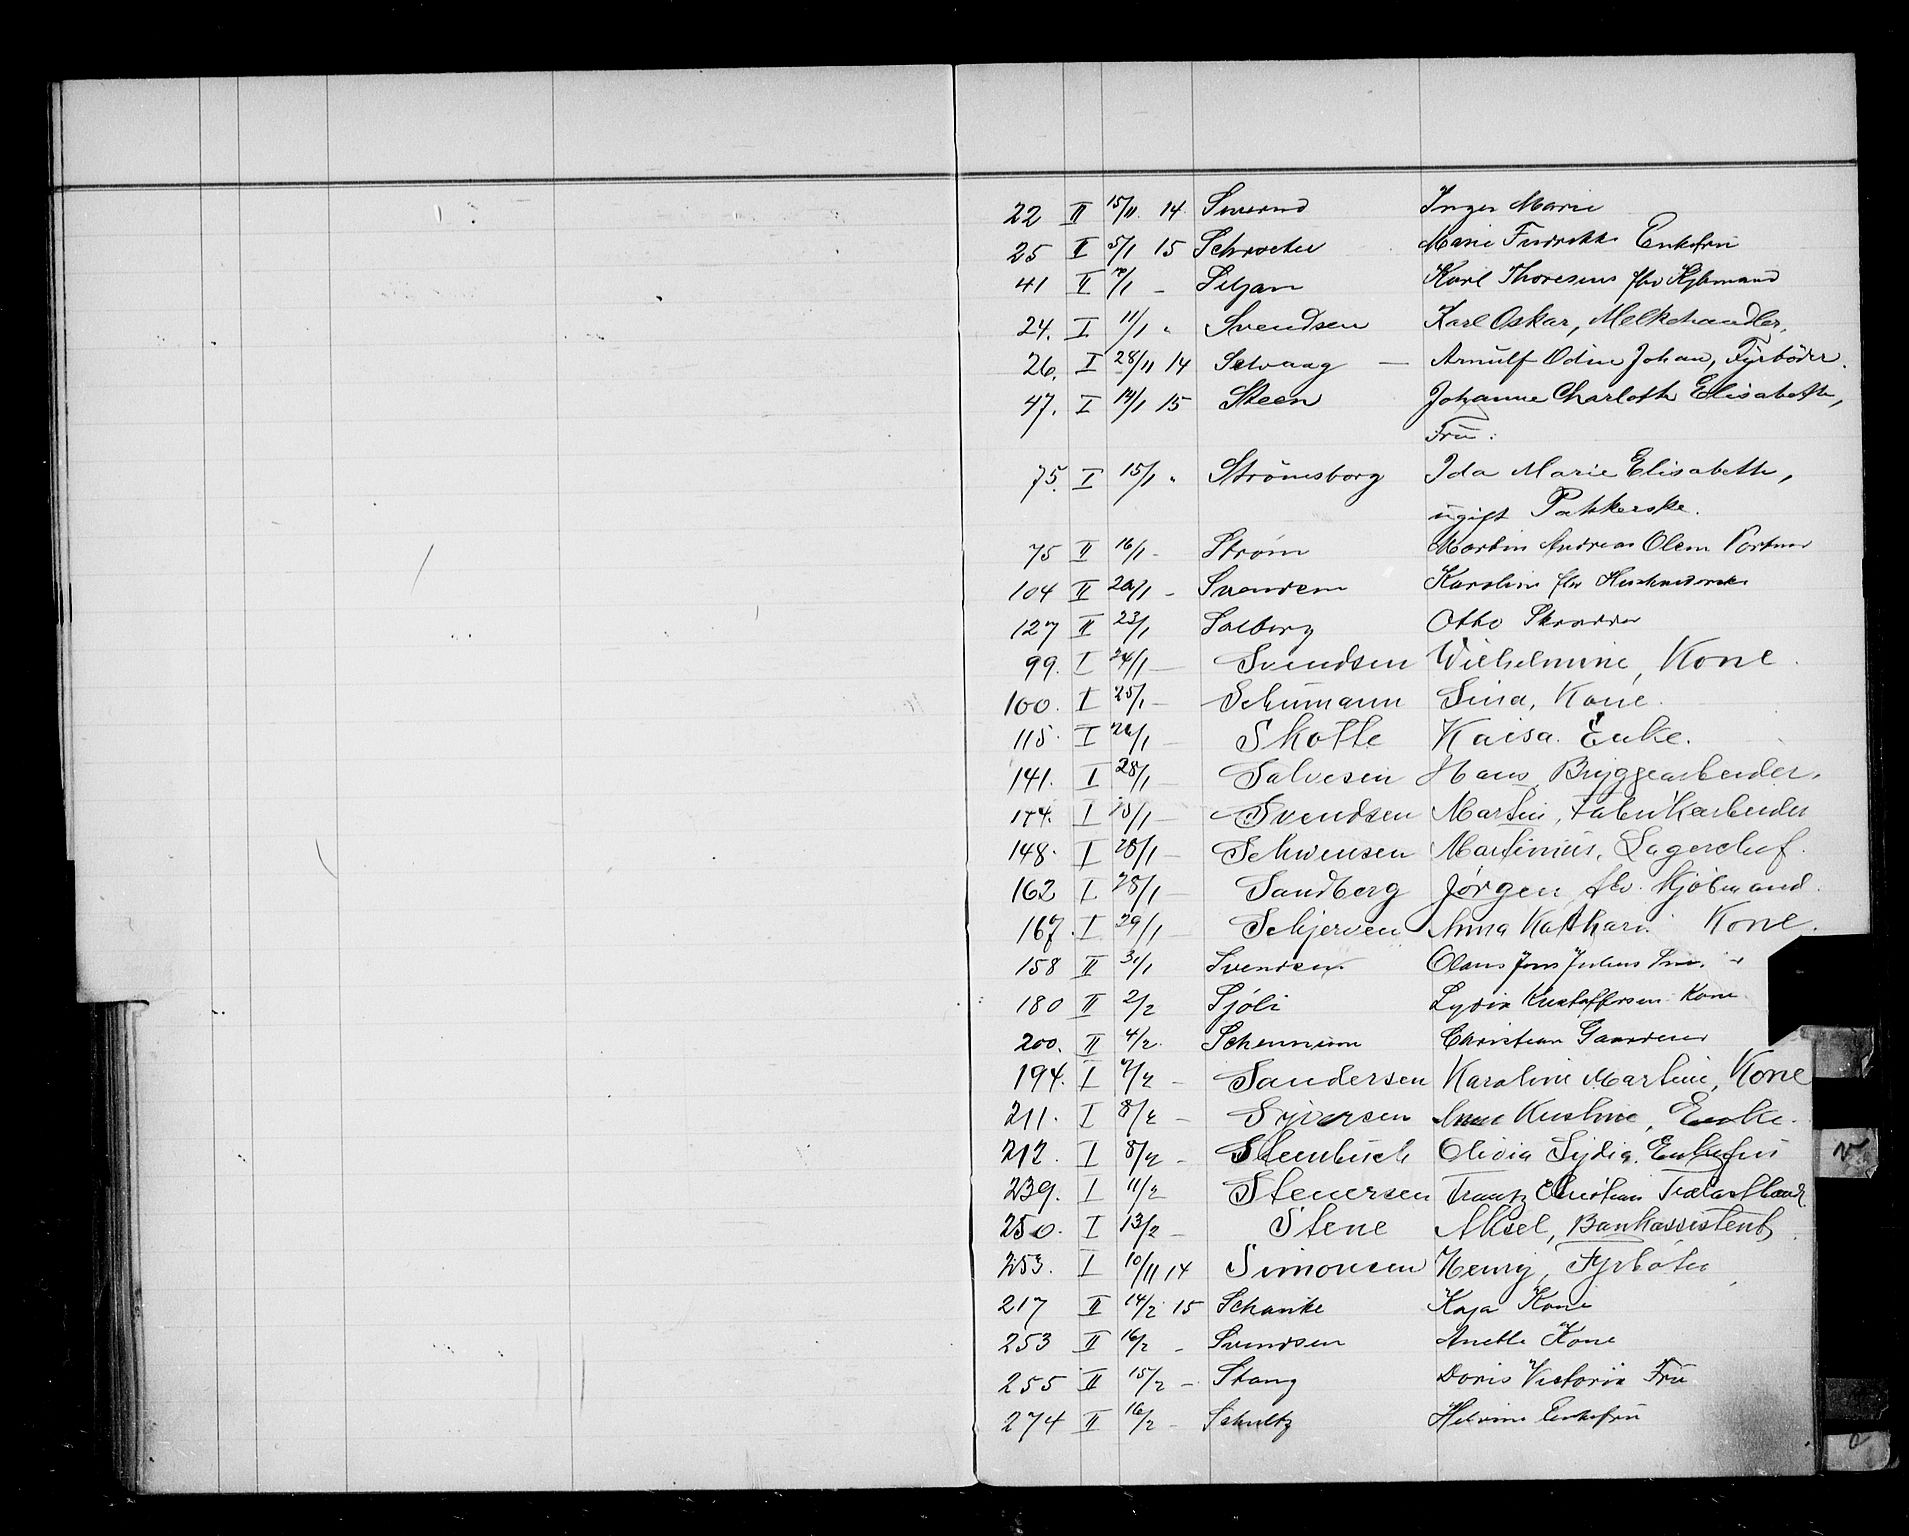 22 II 15/11. 14. Inger Marie
25 II 5/1 15 Schroeter Marie Fredrikke Enkefru
41 II 7/1 - Siljan Karl Thoresens fhv Kjbmand
24. I 11/1 " Svendsen Karl Oskar, Melkehandler.
26. I 28/11 14 Selvaag — Arnulf Odin Johan, Fyrböder.
47. I 14/1 15 Steen Johanne Charlotte Elisabeth,
Fru.
75. I 15/1 " Strömsborg Ida Marie Elisabeth,
ugift Pakkerske.
75 II 16/1 - Strøm Martin Andreas Olsen Portner
104 II 20/1 - Svendsen Karoline fhv
127 II 23/1 Solberg Otto Skrædder
99. I 24/1 — Svendsen Wilhelmine, Kone.
100. I 25/1 — Schumann Sina, Kone.
115. I 26/1 — Skotte Kaisa. Enke.
141. I 28/1 — Salvesen Hans, Bryggearbeider.
144. I 25/1 — Svendsen Martin, Fabrikarbeider
148. I 28/1 — Schwensen Martinius, Lagerchef.
162 I 28/1 — Sandberg Jørgen fhv. Kjöbmand.
167. I 29/1 — Schjerven Anna Kathari. Kone.
158 II 31/1 Svendsen Olaus Jens Julius
180 II 2/2 Sjöli Lydia Kristoffersen Kone
200. II 4/2. Christian Gaardener
194. I 7/2 - Sandersen Karoline Martine, Kone
211. I 8/2 - Syversen Anne Kristine, Enke.
212. I 8/2 - Steenbuch Olivia Lydia. Enkefru
239. I 11/2 Stenersen Frantz Christian Trælasthandl.
250. I 13/2 — Stene Aksel, Bankassistent
253. I 10/11 14 Simonsen Henry, Fyrböter
217 II 14/2 15 Schanke Kaja Kone
253 II 16/2 - Svendsen Anette Kone
255 II 15/2 - Stang Doris Victoria Fru
274 II 16/2 - Schultz Helvine Enkefru
V